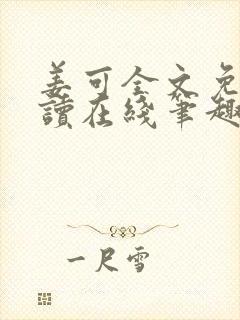 姜可全文免
讀在綫筆趣
一尺雪